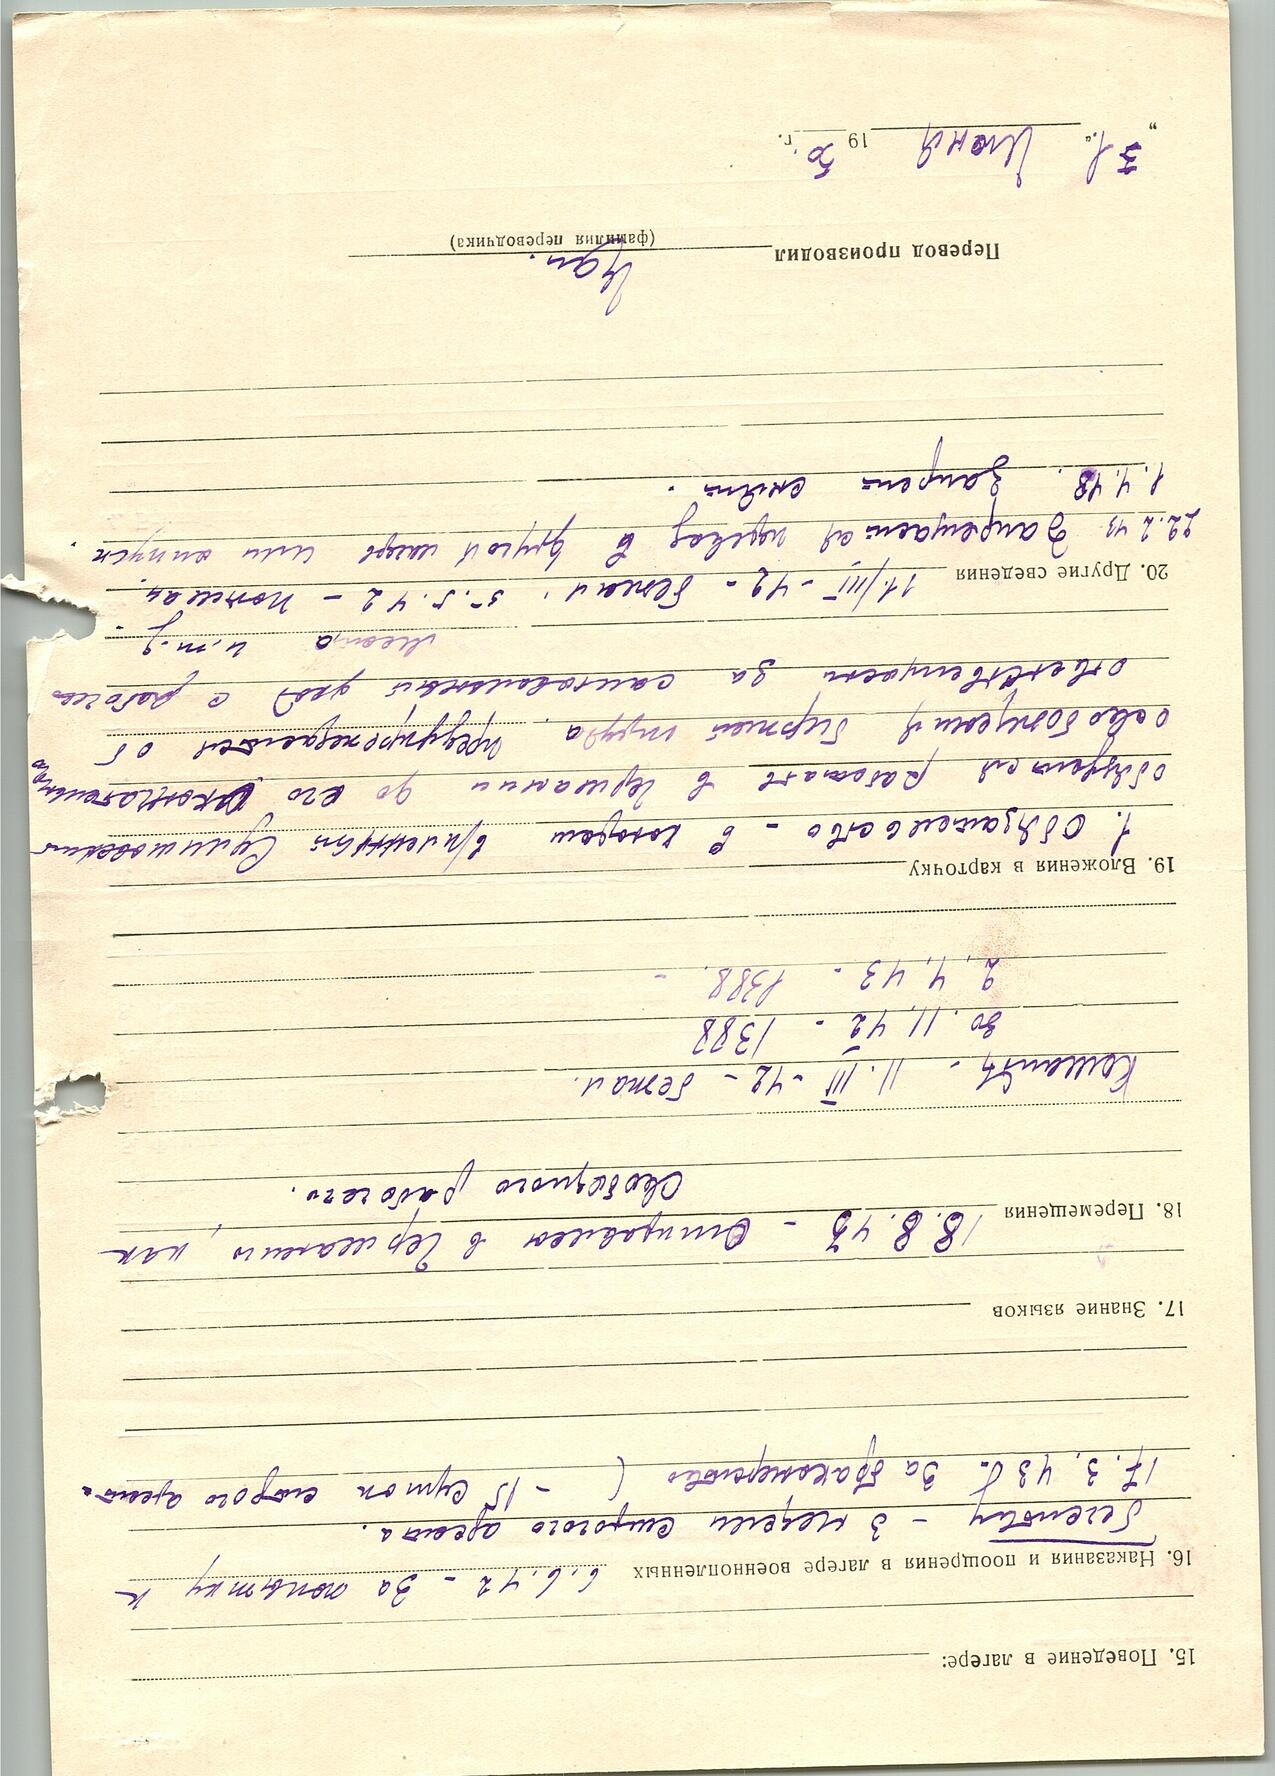 15. Поведение в лагере:
16. Наказания и поощрения в лагере военнопленных 6.6.42 – За попытку к
бегству – 3 недели строгого ареста.
17.3.43 г. За бракомерство ( – 15 суток строгого ареста.
17. Знание языков
18. Перемещения 18.8.43 – Отправлен в Германию, как
свободного рабочего.
11.III-42 – бежал.
30.11.42 – 1388
2.4.43 – 1388. –
19. Вложения в карточку
1. Обязательство – в котором в/пленный
обязуется работать в Германии до его
освобождения биржей труда, предупреждается об
ответственности за самовольный уход с рабочего
места и.т.д.
20. Другие сведения 11/III-42 – бежал. 5.5.42 – пойман.
22.2.43 Запрещается перевод в другой лагерь или отпуск.
1.4.43. Запрет снят.
Перевод производил
(фамилия переводчика)
" 31. " Июня 19 50. г.